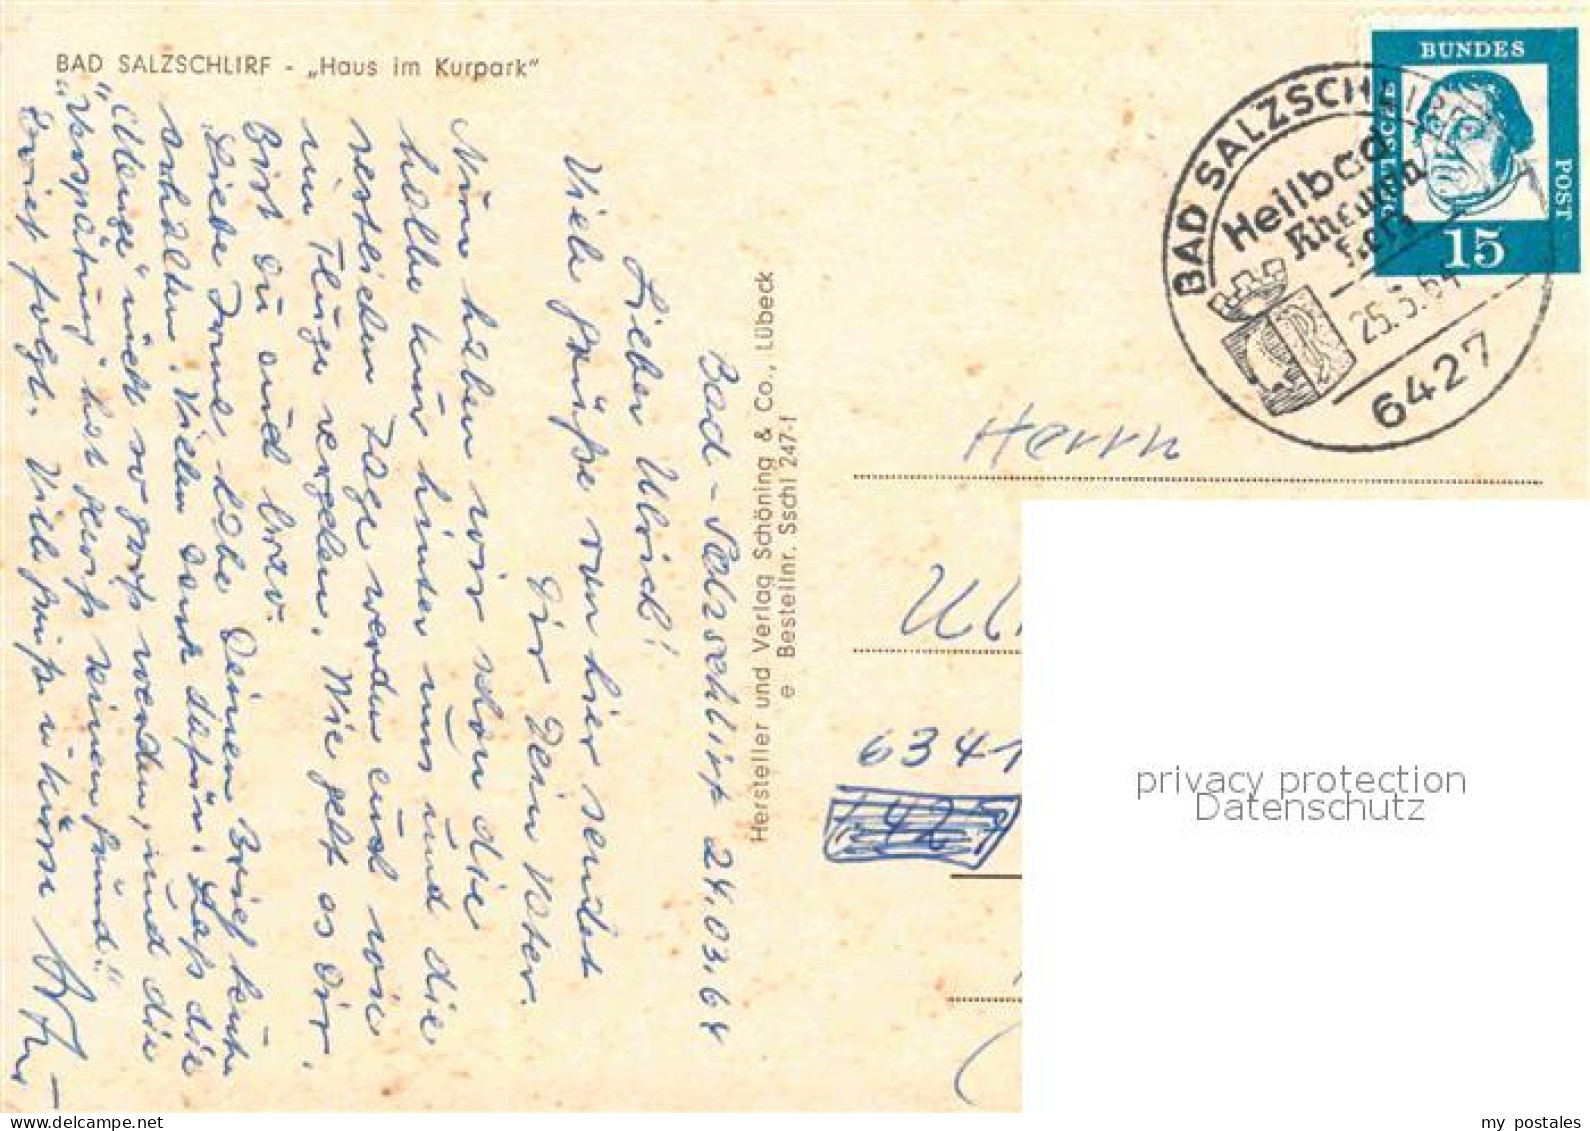 BAD SALZSCHLIRF - „Haus im Kurpark"
Bad-Salzschlirf 24.03.64
Lieber Ulrich!
Viele Grüße von hier sendet
Dir Dein Vater.
Nun haben wir schon die
halbe Kur hinter uns und die
restlichen Tage werden auch wie
im Fluge vergehen. Wie geht es Dir.
Bist Du auch brav.
Liebe Irmel habe Deinen Brief heute
erhalten. Vielen Dank dafür. Lass die
„Menge" nicht so groß werden, und die
„Verspätung" hat gewiß keinen Grund."
Brief folgt. Viele Grüße u. Küsse
Hersteller und Verlag Schöning & Co., Lübeck
e Bestellnr. Sschl 247-f
BUNDES
DEUTSCHE
POST
15
BAD SALZSCHLIRF
Heilbad
Rheuma
25.3.64
6427
Herrn
6341
privacy protection
Datenschutz
my_postales